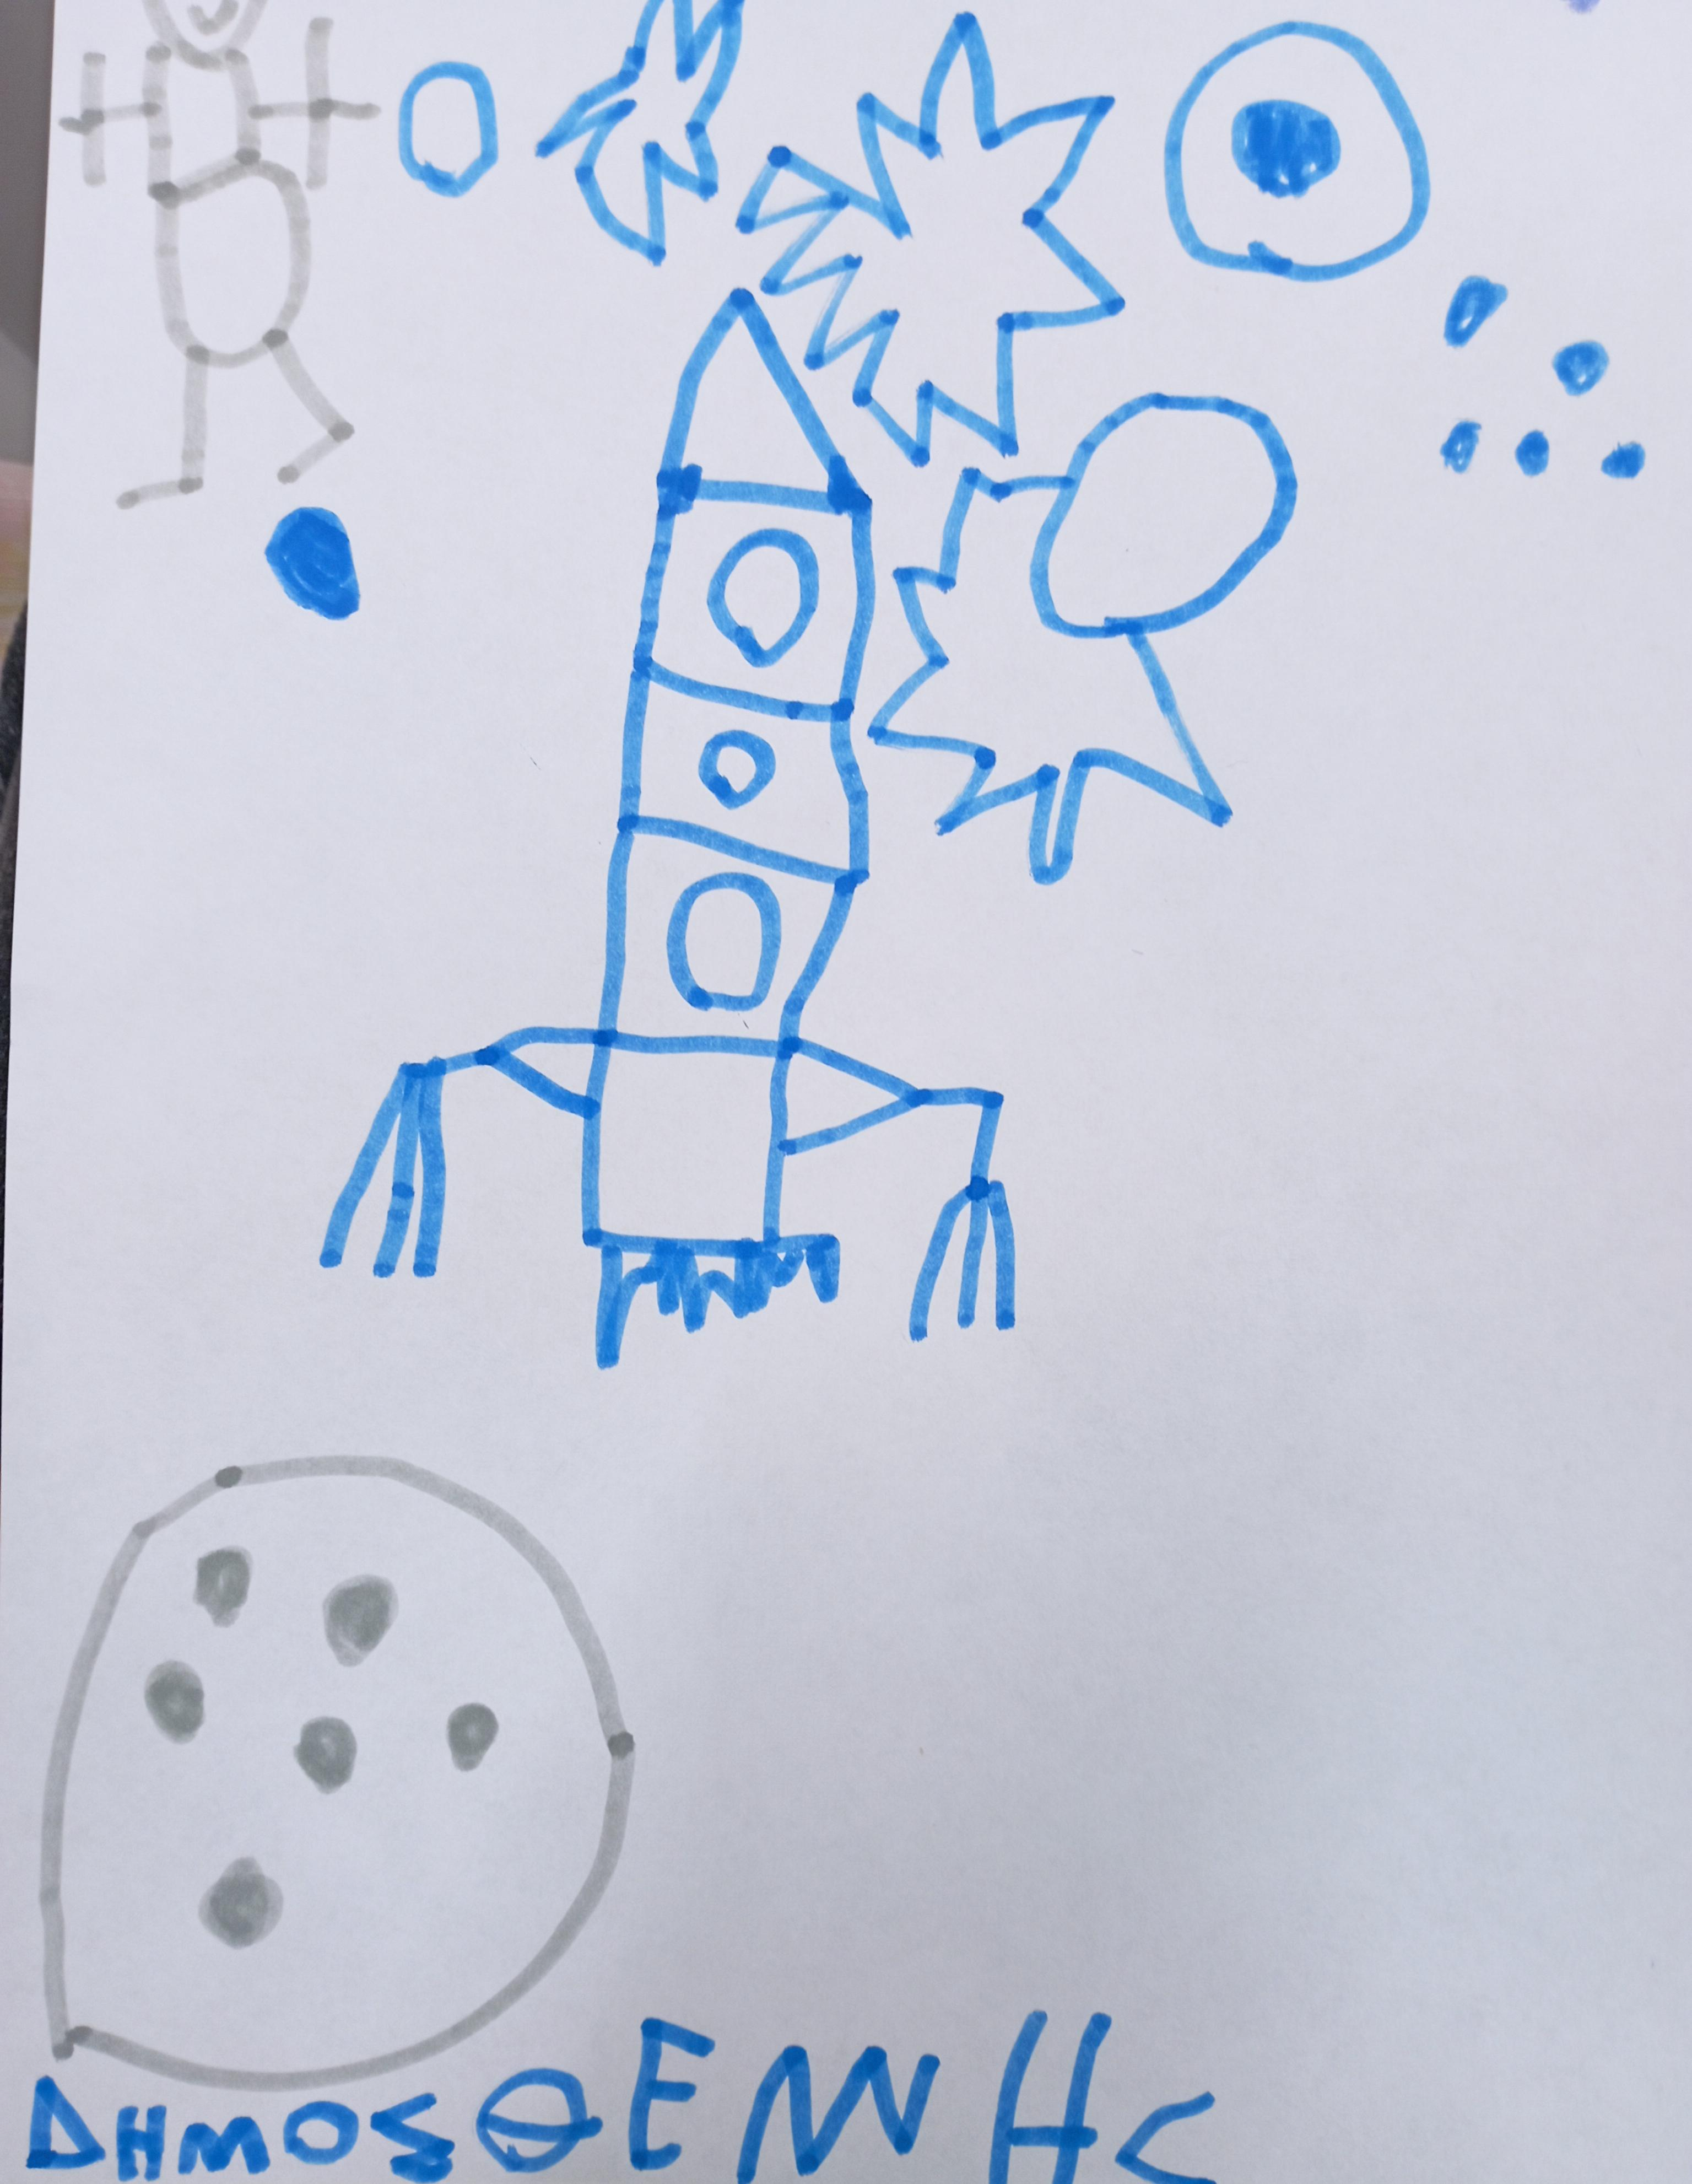 ΔΗΜΟΣΘΕΝΗΣ